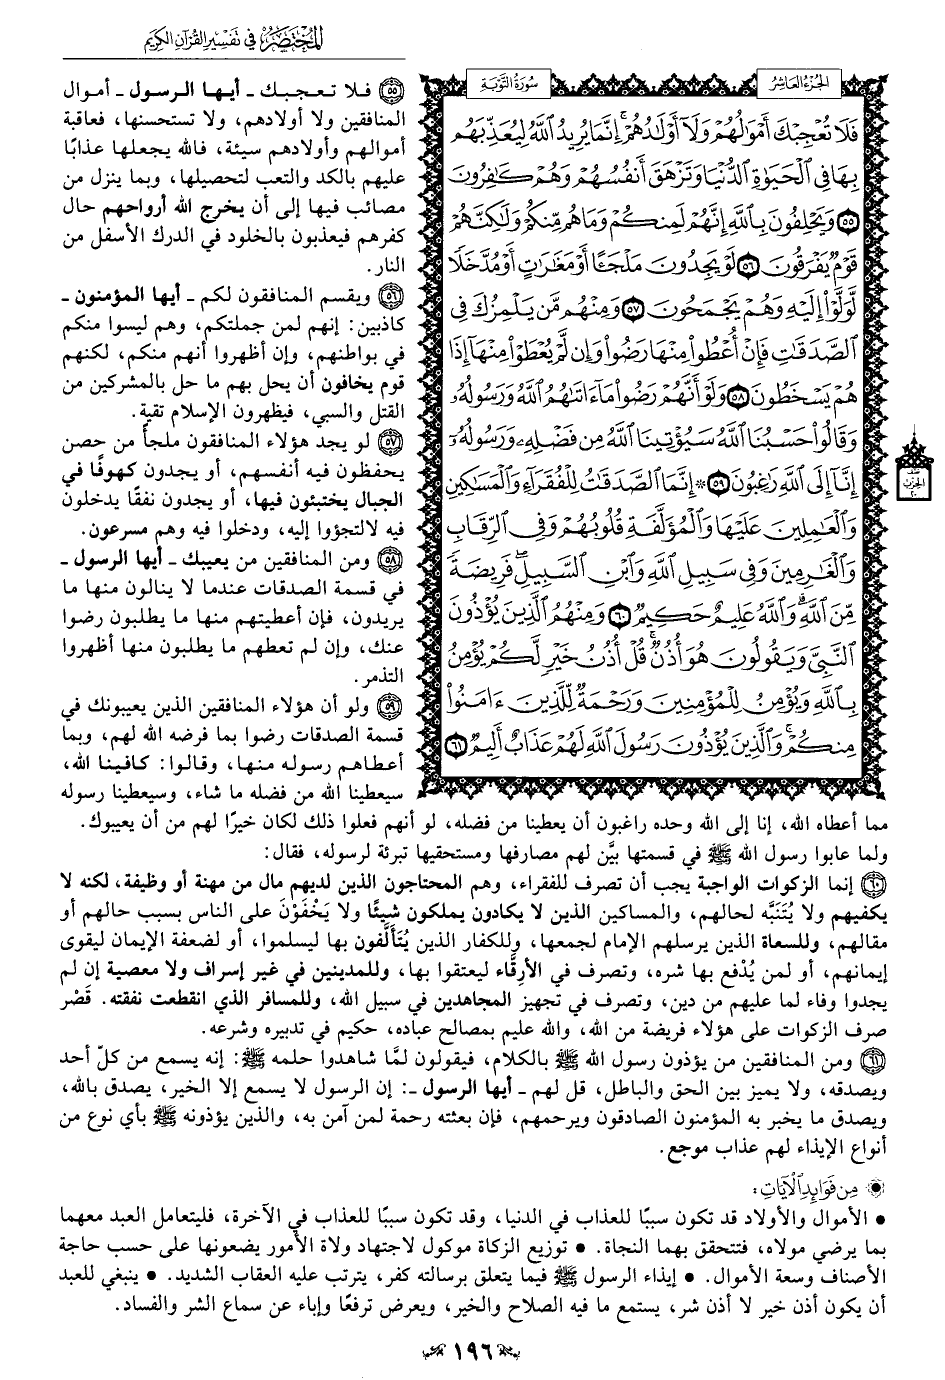 المختصر في تفسير القرآن الكريم
الجزء العاشر
سورة التوبة
فَلَا تُعْجِبْكَ أَمْوَٰلُهُمْ وَلَآ أَوْلَٰدُهُمْ ۚ إِنَّمَا يُرِيدُ ٱللَّهُ لِيُعَذِّبَهُم
بِهَا فِى ٱلْحَيَوٰةِ ٱلدُّنْيَا وَتَزْهَقَ أَنفُسُهُمْ وَهُمْ كَٰفِرُونَ
٥٥ وَيَحْلِفُونَ بِٱللَّهِ إِنَّهُمْ لَمِنكُمْ وَمَا هُم مِّنكُمْ وَلَٰكِنَّهُمْ
قَوْمٌ يَفْرَقُونَ ٥٦ لَوْ يَجِدُونَ مَلْجَـًٔا أَوْ مَغَٰرَٰتٍ أَوْ مُدَّخَلًا
لَّوَلَّوْا۟ إِلَيْهِ وَهُمْ يَجْمَحُونَ ٥٧ وَمِنْهُم مَّن يَلْمِزُكَ فِى
ٱلصَّدَقَٰتِ فَإِنْ أُعْطُوا۟ مِنْهَا رَضُوا۟ وَإِن لَّمْ يُعْطَوْا۟ مِنْهَآ إِذَا
هُمْ يَسْخَطُونَ ٥٨ وَلَوْ أَنَّهُمْ رَضُوا۟ مَآ ءَاتَىٰهُمُ ٱللَّهُ وَرَسُولُهُۥ
وَقَالُوا۟ حَسْبُنَا ٱللَّهُ سَيُؤْتِينَا ٱللَّهُ مِن فَضْلِهِۦ وَرَسُولُهُۥٓ
إِنَّآ إِلَى ٱللَّهِ رَٰغِبُونَ ٥٩ ۞ إِنَّمَا ٱلصَّدَقَٰتُ لِلْفُقَرَآءِ وَٱلْمَسَٰكِينِ
وَٱلْعَٰمِلِينَ عَلَيْهَا وَٱلْمُؤَلَّفَةِ قُلُوبُهُمْ وَفِى ٱلرِّقَابِ
وَٱلْغَٰرِمِينَ وَفِى سَبِيلِ ٱللَّهِ وَٱبْنِ ٱلسَّبِيلِ ۖ فَرِيضَةً
مِّنَ ٱللَّهِ ۗ وَٱللَّهُ عَلِيمٌ حَكِيمٌ ٦٠ وَمِنْهُمُ ٱلَّذِينَ يُؤْذُونَ
ٱلنَّبِىَّ وَيَقُولُونَ هُوَ أُذُنٌ ۚ قُلْ أُذُنُ خَيْرٍ لَّكُمْ يُؤْمِنُ
بِٱللَّهِ وَيُؤْمِنُ لِلْمُؤْمِنِينَ وَرَحْمَةٌ لِّلَّذِينَ ءَامَنُوا۟
مِنكُمْ ۚ وَٱلَّذِينَ يُؤْذُونَ رَسُولَ ٱللَّهِ لَهُمْ عَذَابٌ أَلِيمٌ ٦١
٥٥ فلا تعجبك ـ أيها الرسول ـ أموال
المنافقين ولا أولادهم، ولا تستحسنها، فعاقبة
أموالهم وأولادهم سيئة، فالله يجعلها عذابًا
عليهم بالكد والتعب لتحصيلها، وبما ينزل من
مصائب فيها إلى أن يخرج الله أرواحهم حال
كفرهم فيعذبون بالخلود في الدرك الأسفل من
النار.
٥٦ ويقسم المنافقون لكم ـ أيها المؤمنون ـ
كاذبين: إنهم لمن جملتكم، وهم ليسوا منكم
في بواطنهم، وإن أظهروا أنهم منكم، لكنهم
قوم يخافون أن يحل بهم ما حل بالمشركين من
القتل والسبي، فيظهرون الإسلام تقية.
٥٧ لو يجد هؤلاء المنافقون ملجأً من حصن
يحفظون فيه أنفسهم، أو يجدون كهوفًا في
الجبال يختبئون فيها، أو يجدون نفقًا يدخلون
فيه لالتجؤوا إليه، ودخلوا فيه وهم مسرعون.
٥٨ ومن المنافقين من يعيبك ـ أيها الرسول ـ
في قسمة الصدقات عندما لا ينالون منها ما
يريدون، فإن أعطيتهم منها ما يطلبون رضوا
عنك، وإن لم تعطهم ما يطلبون منها أظهروا
التذمر.
٥٩ ولو أن هؤلاء المنافقين الذين يعيبونك في
قسمة الصدقات رضوا بما فرضه الله لهم، وبما
أعطاهم رسوله منها، وقالوا: كافينا الله،
سيعطينا الله من فضله ما شاء، وسيعطينا رسوله
مما أعطاه الله، إنا إلى الله وحده راغبون أن يعطينا من فضله، لو أنهم فعلوا ذلك لكان خيرًا لهم من أن يعيبوك.
ولما عابوا رسول الله ﷺ في قسمتها بيَّن لهم مصارفها ومستحقيها تبرئة لرسوله، فقال:
٦٠ إنما الزكوات الواجبة يجب أن تصرف للفقراء، وهم المحتاجون الذين لديهم مال من مهنة أو وظيفة، لكنه لا
يكفيهم ولا يُتَنَبَّه لحالهم، والمساكين الذين لا يكادون يملكون شيئًا ولا يَخْفَوْنَ على الناس بسبب حالهم أو
مقالهم، وللسعاة الذين يرسلهم الإمام لجمعها، وللكفار الذين يُتَألَّفون بها ليسلموا، أو لضعفة الإيمان ليقوى
إيمانهم، أو لمن يُدْفع بها شره، وتصرف في الأرِقَّاء ليعتقوا بها، وللمدينين في غير إسراف ولا معصية إن لم
يجدوا وفاء لما عليهم من دين، وتصرف في تجهيز المجاهدين في سبيل الله، وللمسافر الذي انقطعت نفقته. قَصْر
صرف الزكوات على هؤلاء فريضة من الله، والله عليم بمصالح عباده، حكيم في تدبيره وشرعه.
٦١ ومن المنافقين من يؤذون رسول الله ﷺ بالكلام، فيقولون لمَّا شاهدوا حلمه ﷺ: إنه يسمع من كلّ أحد
ويصدقه، ولا يميز بين الحق والباطل، قل لهم ـ أيها الرسول ـ: إن الرسول لا يسمع إلا الخير، يصدق بالله،
ويصدق ما يخبر به المؤمنون الصادقون ويرحمهم، فإن بعثته رحمة لمن آمن به، والذين يؤذونه ﷺ بأي نوع من
أنواع الإيذاء لهم عذاب موجع.
من فوائد الآيات:
• الأموال والأولاد قد تكون سببًا للعذاب في الدنيا، وقد تكون سببًا للعذاب في الآخرة، فليتعامل العبد معهما
بما يرضي مولاه، فتتحقق بهما النجاة. • توزيع الزكاة موكول لاجتهاد ولاة الأمور يضعونها على حسب حاجة
الأصناف وسعة الأموال. • إيذاء الرسول ﷺ فيما يتعلق برسالته كفر، يترتب عليه العقاب الشديد. • ينبغي للعبد
أن يكون أذن خير لا أذن شر، يستمع ما فيه الصلاح والخير، ويعرض ترفعًا وإباء عن سماع الشر والفساد.
١٩٦